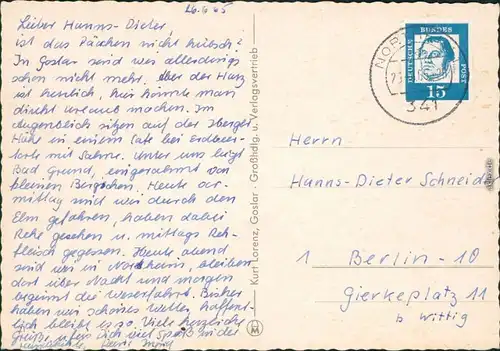 26.6.65
Lieber Hanns-Dieter
ist das Pärchen nicht hübsch?
In Goslar sind wir allerdings
schon nicht mehr. Aber der Harz
ist herrlich, hier könnte man
direkt Urlaub machen. Im
Augenblick sitzen auf der Iberger
Höhe in einem Café bei Erdbeer-
torte mit Sahne. Unter uns liegt
Bad Grund, eingerahmt von
kleinen Bergchen. Heute vor-
mittag sind wir durch den
Elm gefahren, haben dabei
Rehe gesehen u. mittags Reh-
fleisch gegessen. Heute abend
sind wir in Northeim, bleiben
dort über Nacht und morgen
beginnt die Weserfahrt. Bisher
haben wir schönes Wetter, hoffent-
lich bleibt es so. Viele herzliche
Grüße, und viel Spaß in der
Kurt Lorenz, Goslar · Großhdlg. u. Verlagsvertrieb
M
DEUTSCHE BUNDESPOST
15
NOR
341
Herrn
Hanns-Dieter Schneid
1 Berlin-10
Gierkeplatz 11
b Wittig